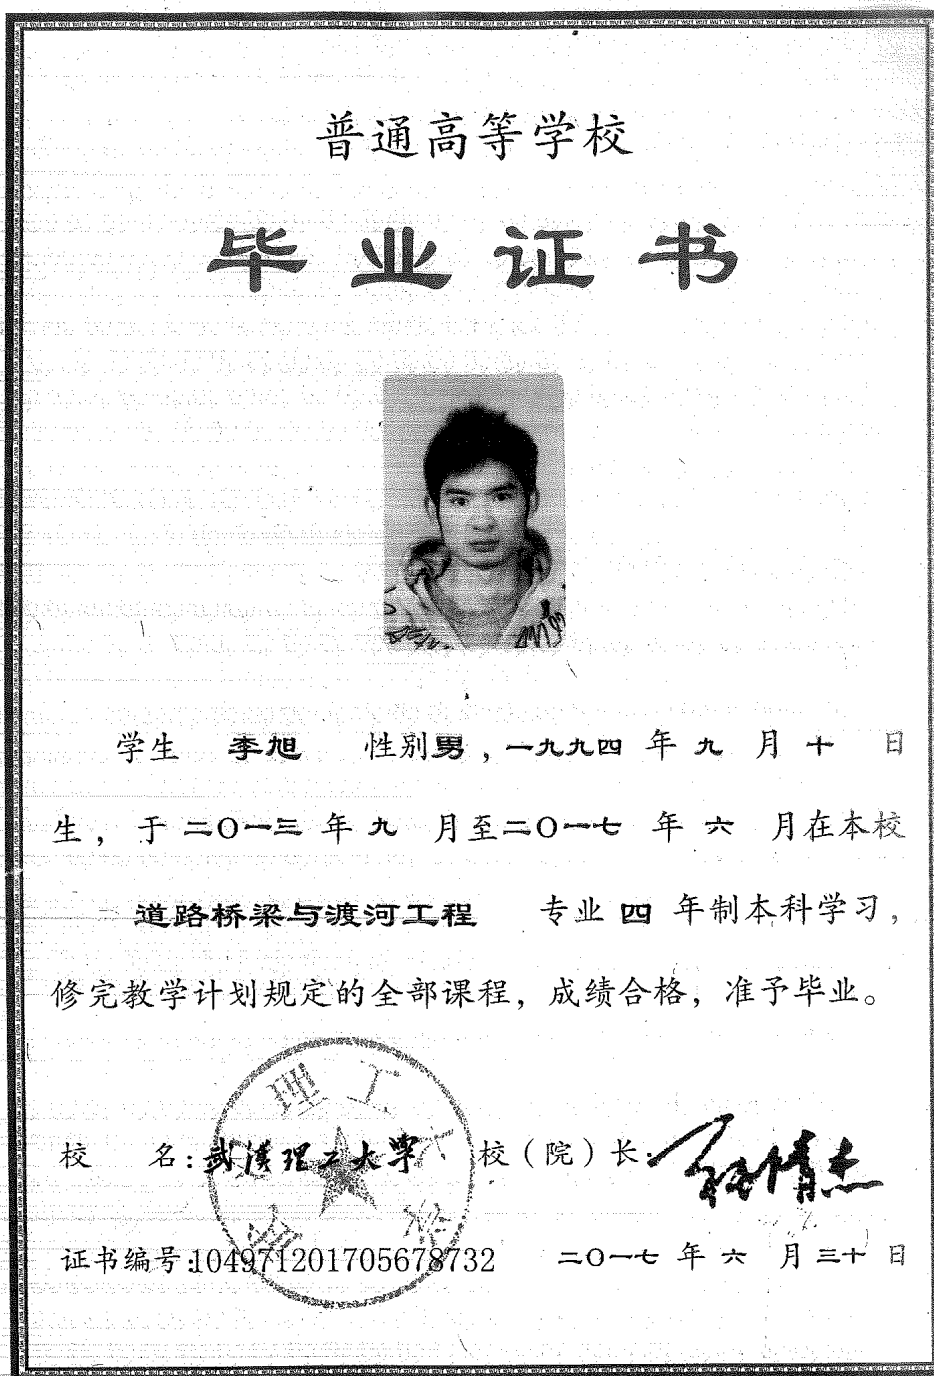 普通高等学校
毕业证书
学生 李旭 性别男，一九九四 年 九 月 十 日
生，于 二〇一三 年 九 月至二〇一七 年 六 月在本校
道路桥梁与渡河工程 专业 四 年制本科学习，
修完教学计划规定的全部课程，成绩合格，准予毕业。
校 名:武汉理工大学 校（院）长:
证书编号:104971201705678732 二〇一七 年 六 月三十 日